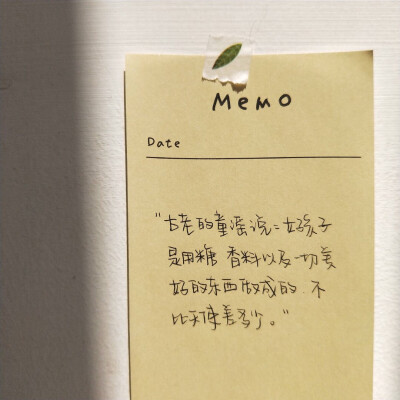 MEMO
Date
"古老的童谣说:好孩子
是用糖 香料以及一切美
好的东西做成的.不
比天使差多少。"